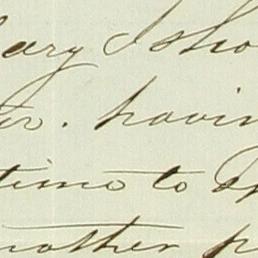 ary I sho
er. havin
time to sp
nother p